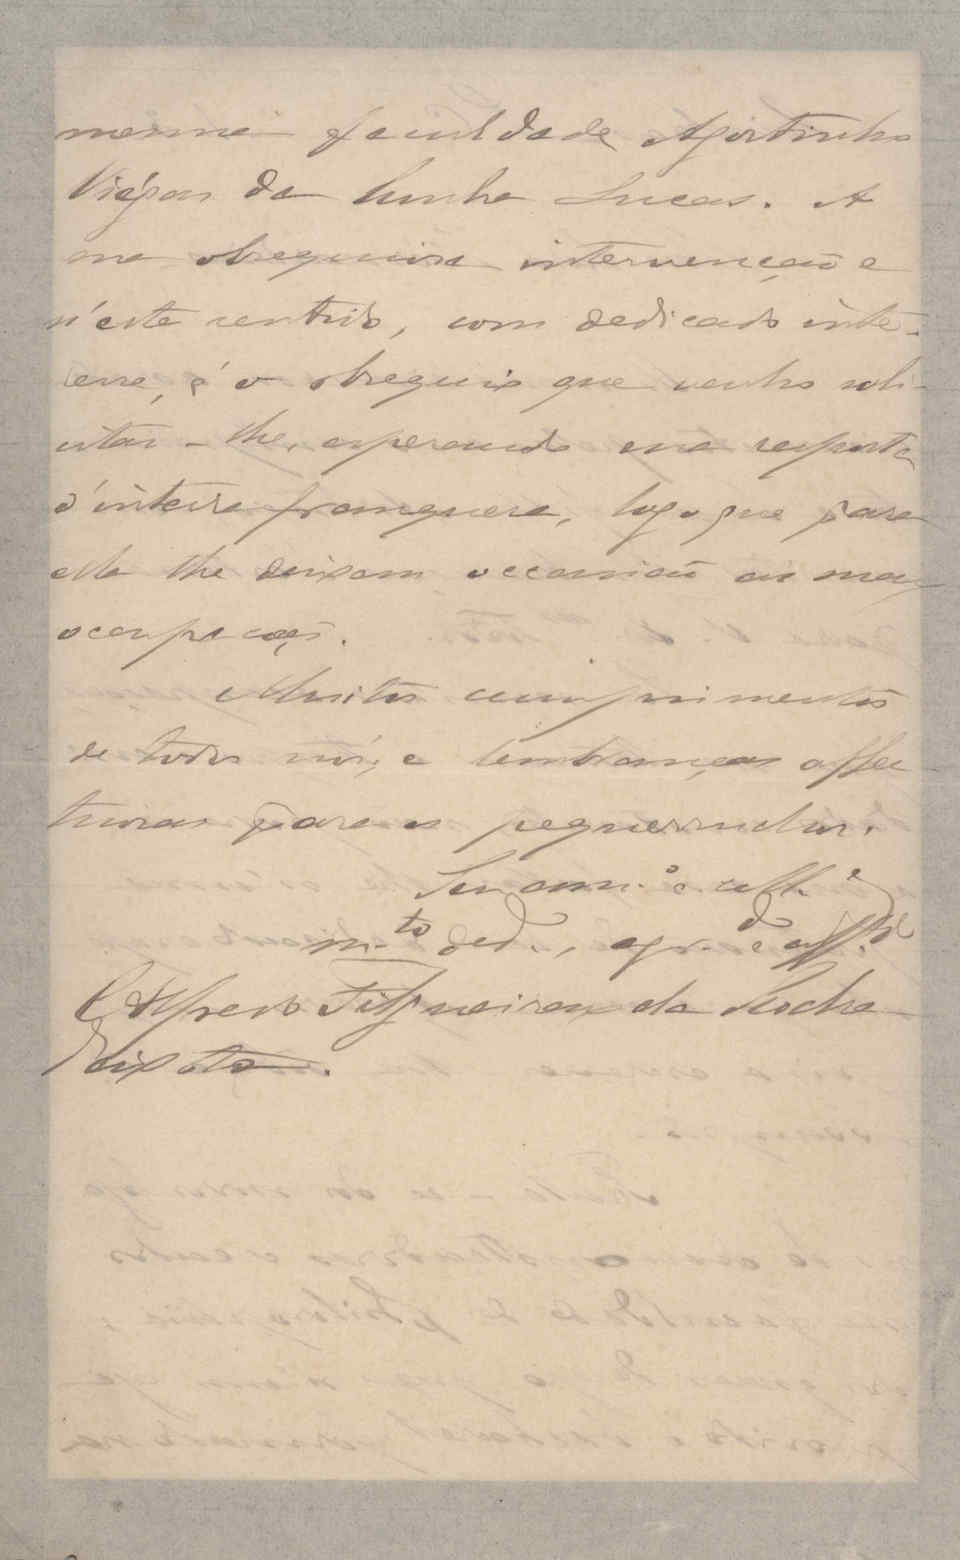 mesma faculdade Agostinho
Viégas da Cunha Lucas. A
sua obsequiosa intervenção e
n'este sentido, com dedicado inte-
resse, é o obsequio que venho soli-
citar-lhe, esperando sua resposta
d'inteira franqueza, logo que para
ella lhe deixam occasião as suas
occupações.
Muitos cumprimentos
de todos nós, e lembranças affec-
tuosas para os pequerruchos.
Seu am.º e coll.ª
m.to ded.º, agr.do e
Alfredo Filgueiras da Rocha
Peixoto.